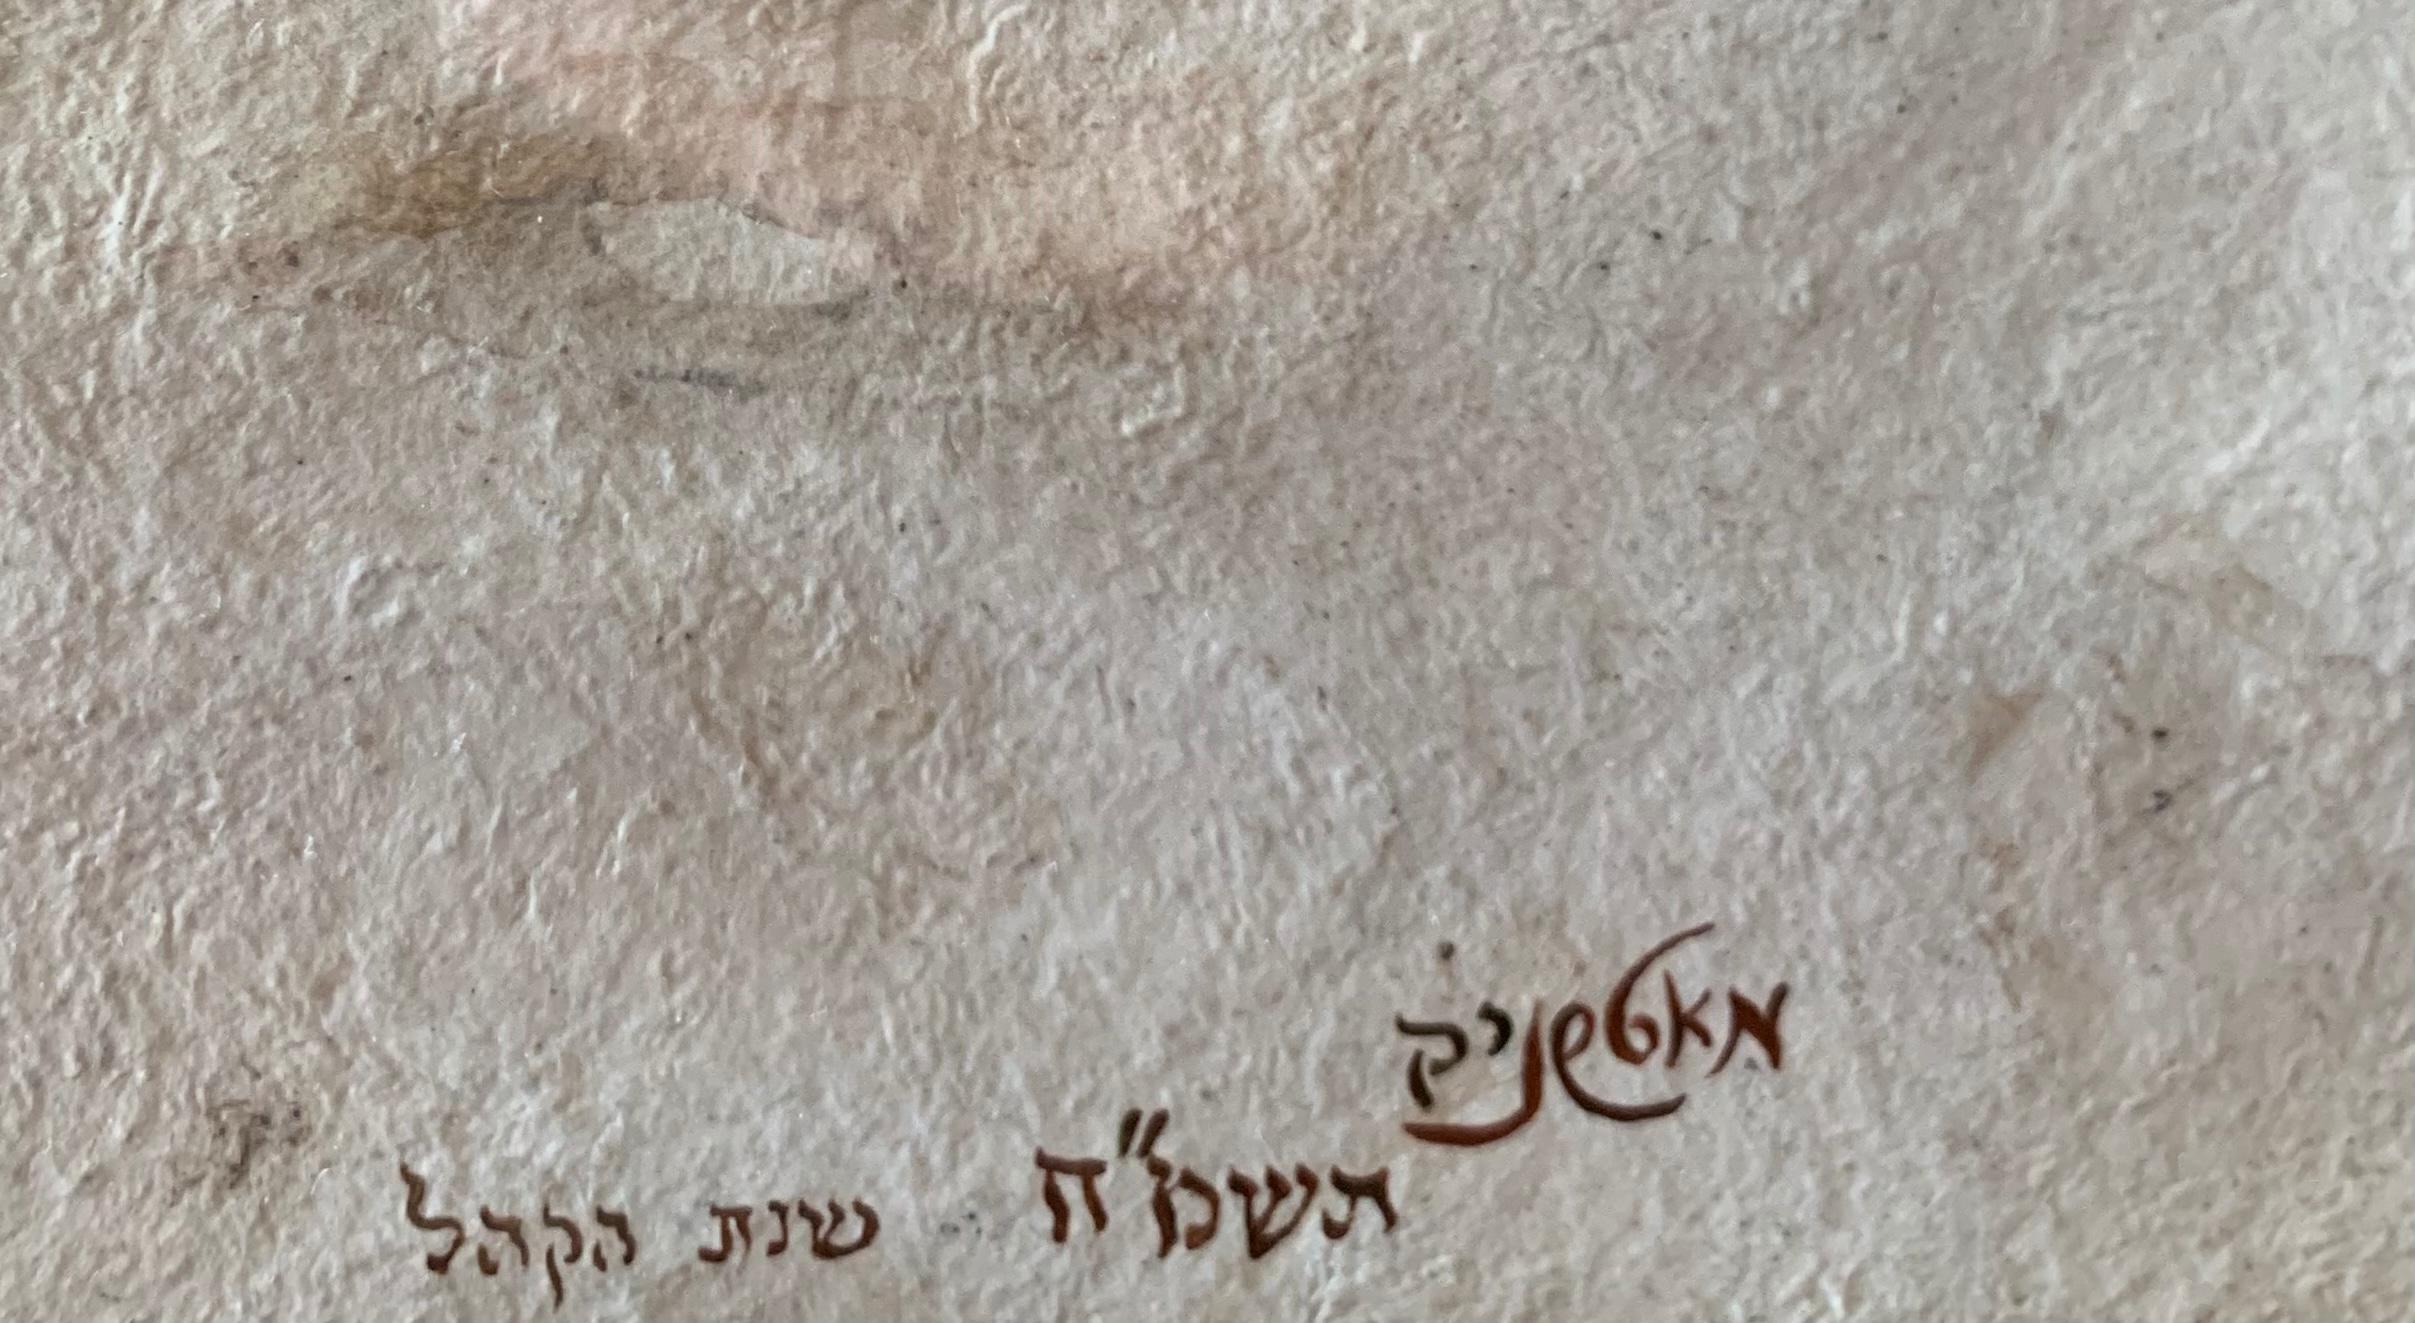 מאטשניק
תשמ"ח שנת הקהל